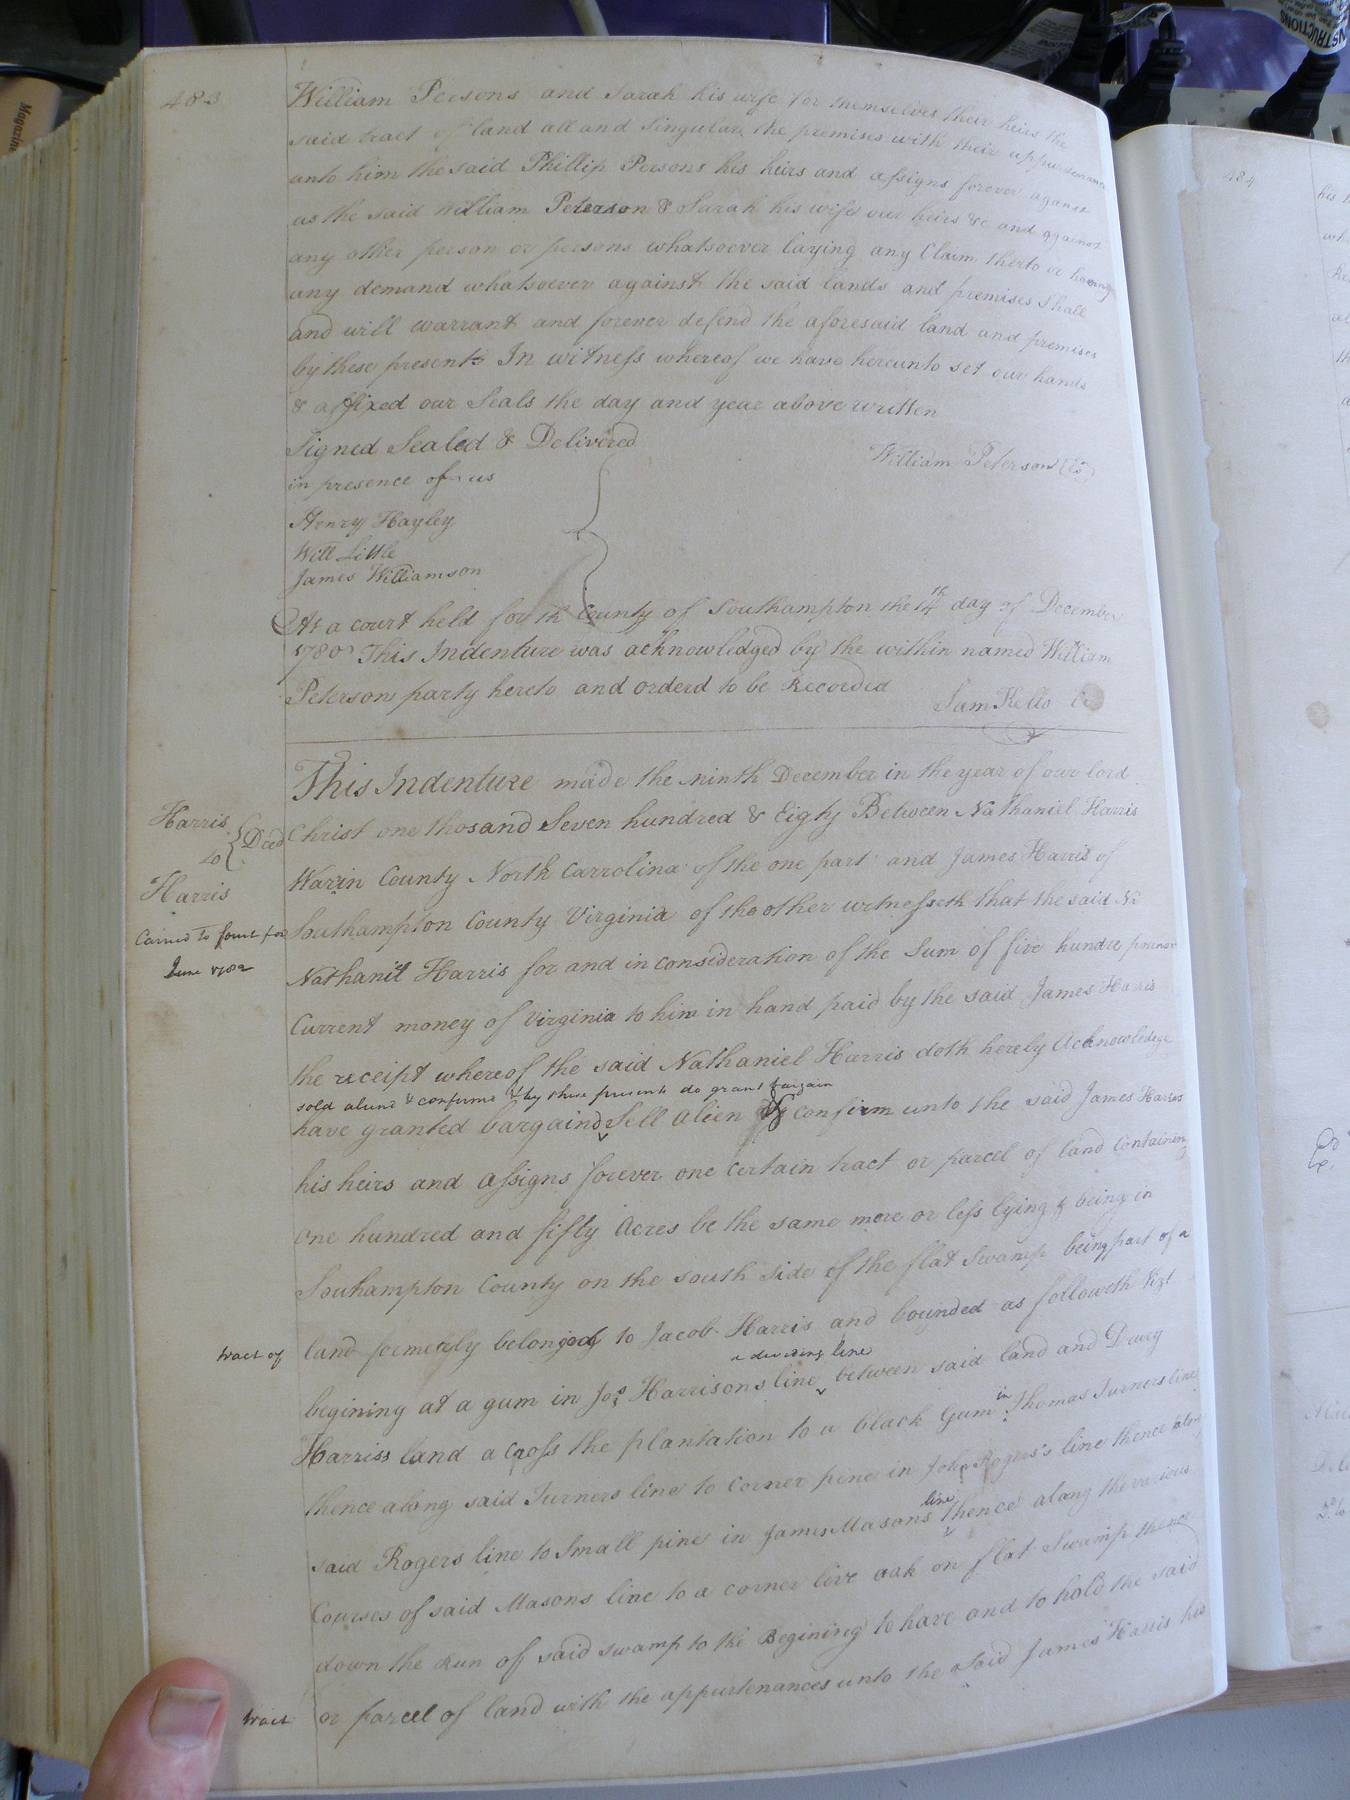 483
William Persons and Sarah his wife for themselves their heirs the
said tract of land all and Singular the premises with their appurtenances
unto him the said Phillip Persons his heirs and assigns forever against
us the said William Peterson & Sarah his wife our heirs &c and against
any other person or persons whatsoever laying any Claim therto or having
any demand whatsoever against the said lands and premises shall
and will warrant and forever defend the aforesaid land and premises
by these presents In witness whereof we have hereunto set our hands
& affixed our Seals the day and year above written
Signed Sealed & Delivered
William Peterson (LS)
in presence of us
Henry Hayley
Will Little
James Williamson
At a court held for th County of Southampton the 14th day of December
1780 This Indenture was acknowledged by the within named William
Peterson party hereto and orderd to be Recorded
Sam Kello
This Indenture made the ninth December in the year of our lord
Harris
to
Harris
Deed
Christ one thosand Seven hundred & Eigty Between Nathaniel Harris
Warin County North Carrolina of the one part and James Harris of
Southampton County Virginia of the other witnesseth that the said Na
Carried to
June 1782
Nathanil Harris for and in consideration of the Sum of five hundre pounds
Current money of Virginia to him in hand paid by the said James Harris
the receipt whereof the said Nathaniel Harris doth hereby Acknowledge
sold aliend & confirmd & by these presents do grant bargain
have granted bargaind Sell alien & confirm unto the said James Harris
his heirs and assigns forever one certain tract or parcel of land Containing
one hundred and fifty Acres be the same more or less lying & being in
Southampton County on the south side of the flat Swamp being part of a
tract of land formerly belonged to Jacob Harris and bounded as followeth Vizt
a dividing line
begining at a gum in Jos Harrisons line between said land and Drury
Harriss land across the plantation to a black Gum in Thomas Turners line
thence along said Turners line to Corner pine in John Rogers's line thence along
said Rogers line to Small pine in James Masons line thence along the various
Courses of said Masons line to a corner live oak on flat Swamp thence
down the Run of said swamp to the Begining to have and to hold the said
tract or parcel of land with the appurtenances unto the said James Harris his
484
INSTRUCTIONS
Magazine